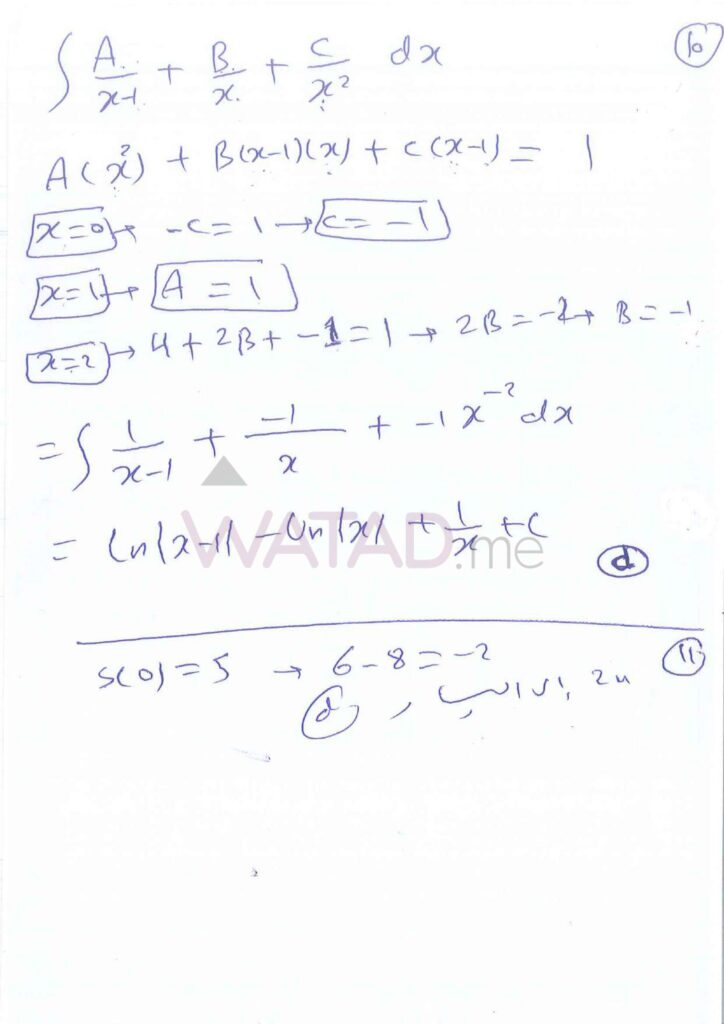 ∫ A/(x-1) + B/x + C/x² dx ⑩
A(x²) + B(x-1)(x) + C(x-1) = 1
x=0 → -C = 1 → C = -1
x=1 → A = 1
x=2 → 4 + 2B + -1 = 1 → 2B = -2 → B = -1
= ∫ 1/(x-1) + -1/x + -1x⁻² dx
= ln|x-1| - ln|x| + 1/x + C
WATAD.me
d
S(0) = 5 → 6-8 = -2 ⑪
d